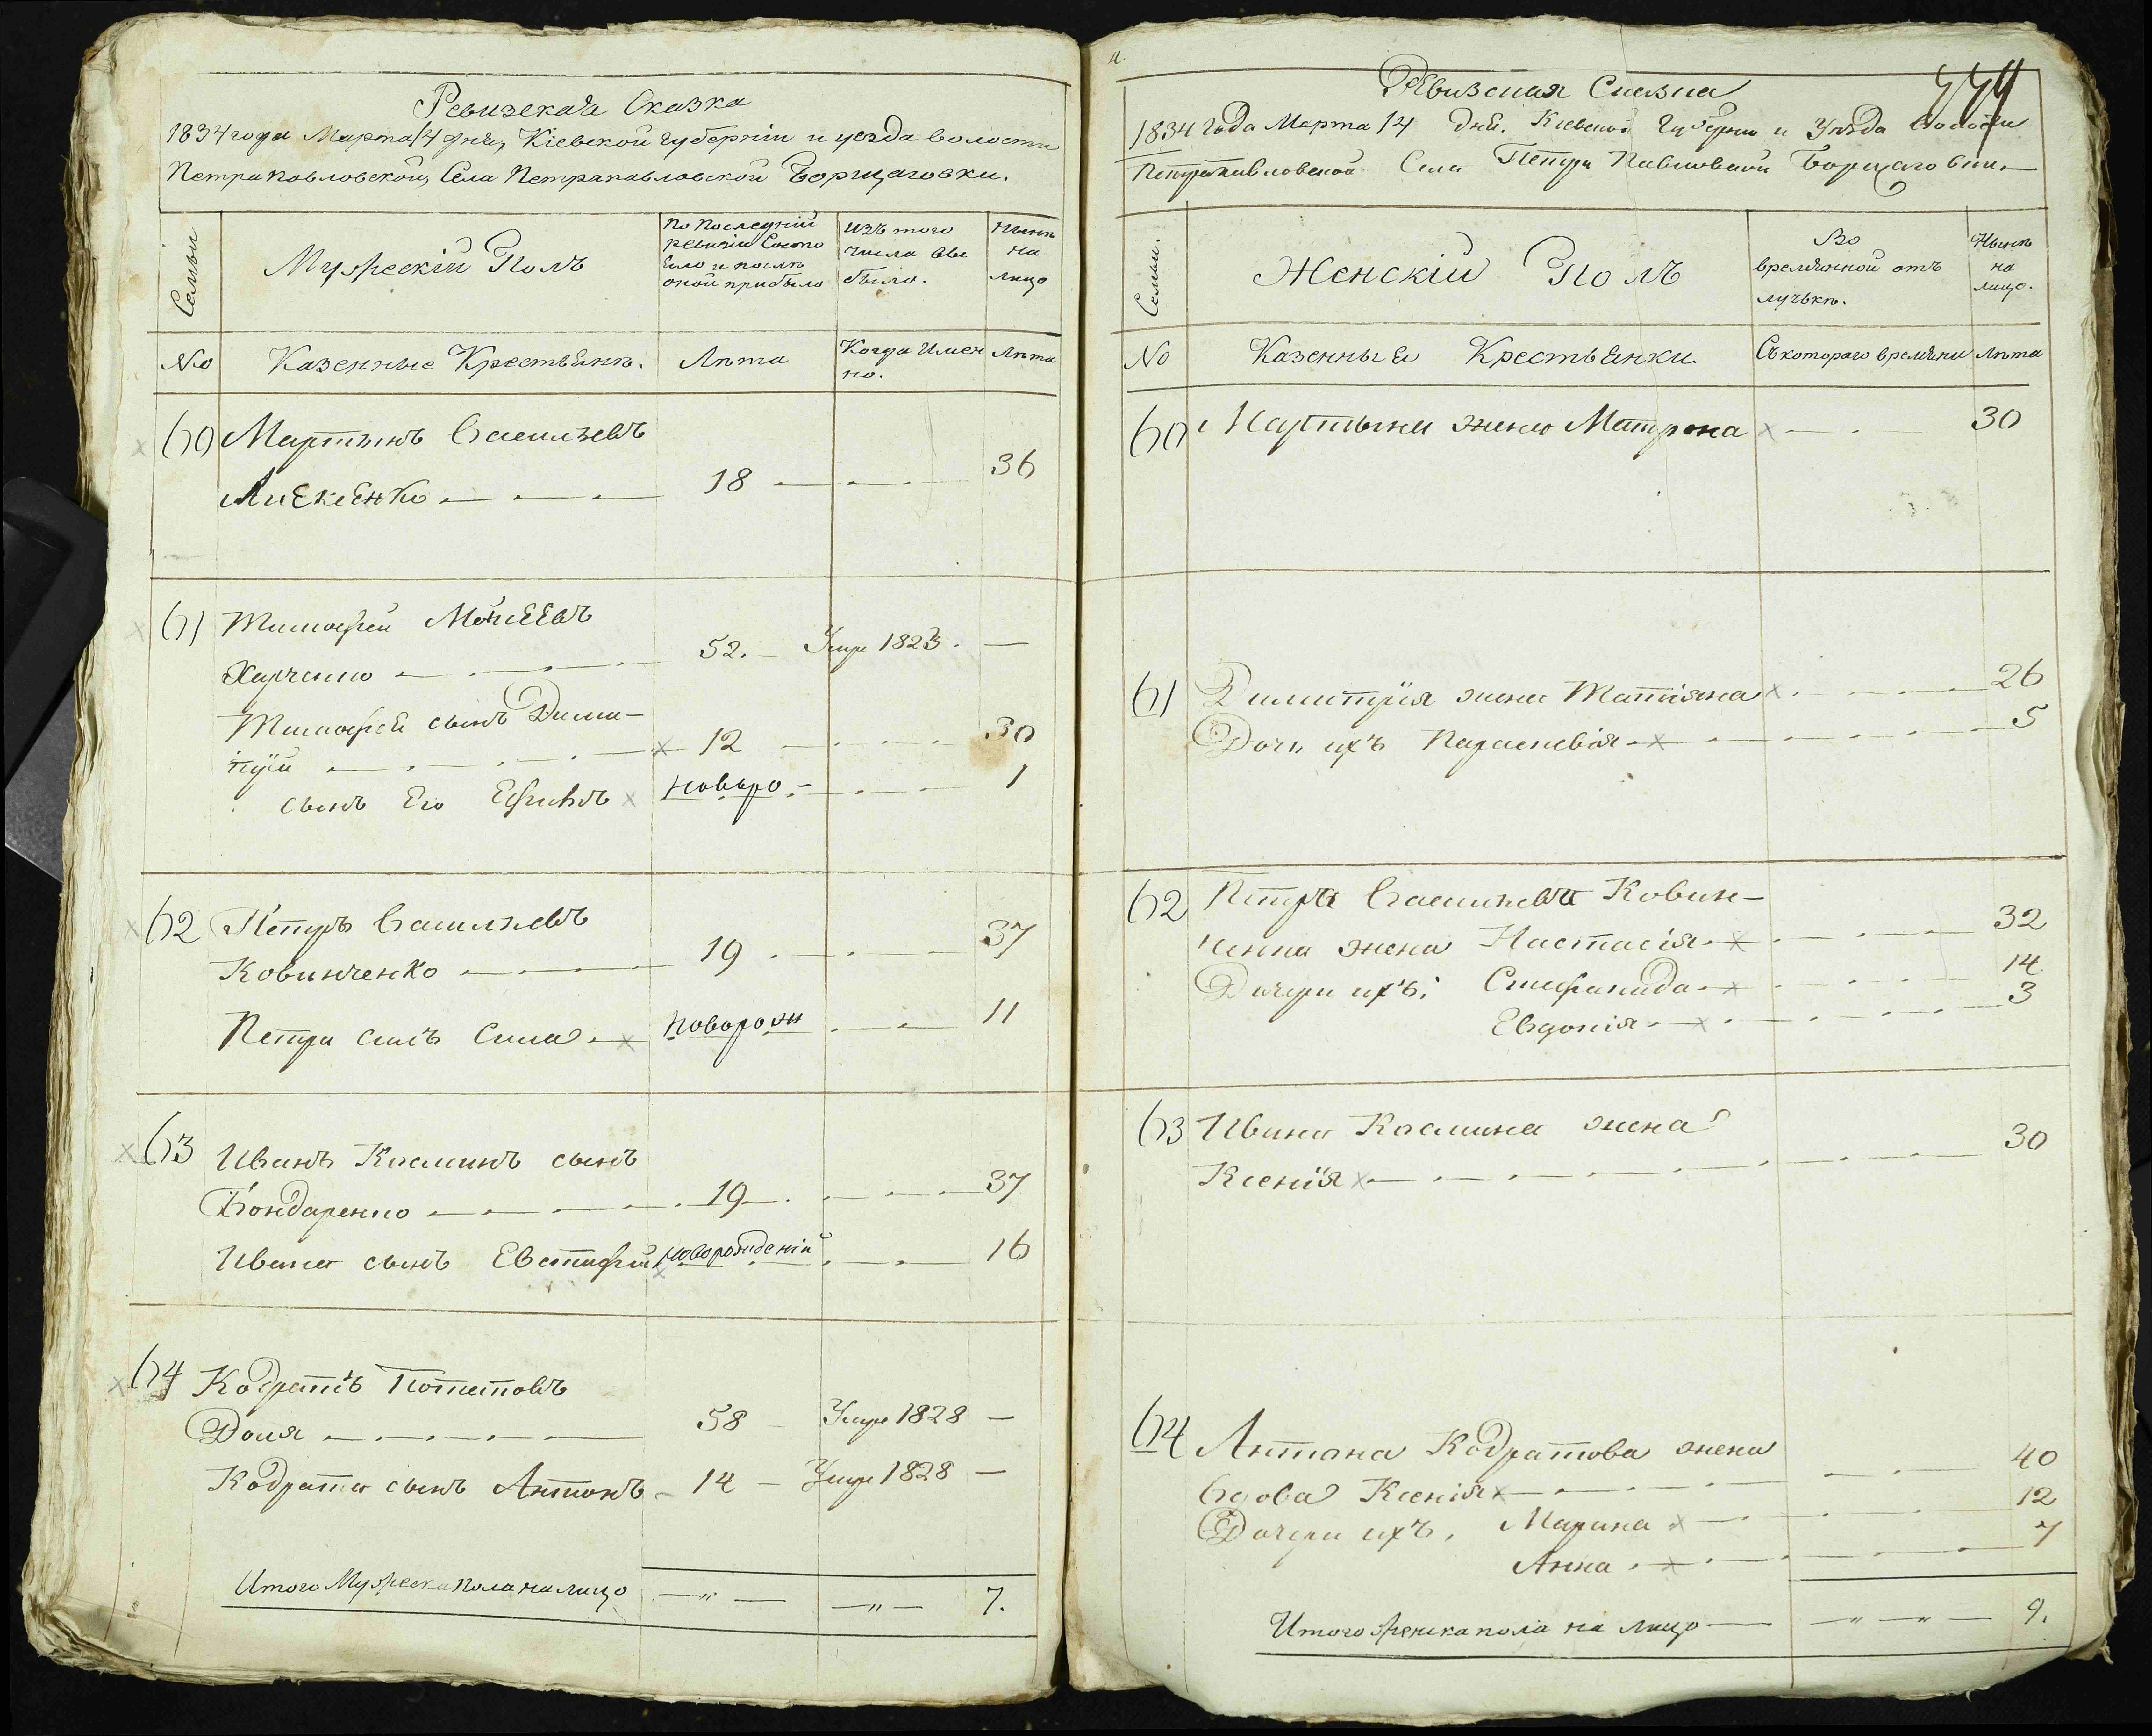 Ревизская Сказка
1834 года Марта 14 дня, Кіевской губерніи и уезда волости
Петрапавловской, Села Петрапавловской Борщаговки.
Семьи
Мужескій Полъ
По последній ревизіи Состо яло и послѣ оной прибыло
Изъ того числа вы было.
Нынѣ на лицо
No
Казенные Крестьянѣ.
Лѣта
Когда Имен но.
Лѣта
60 Мартынъ Васильевъ
18 36
61 Тимофей Мойсеевъ
Харченко 52. Умре 1823.
Тимофея сынъ Дими-
трій 12 30
сынъ Его Ефимъ новоро 1
62 Петръ Васильевъ
Ковинченко 19 37
Петра сынъ Сила новорож 11
63 Иванъ Косминъ сынъ
Бондаренко 19 37
Ивана сынъ Евстафій новорожденій 16
64 Кодратъ Потаповъ
Доля 58 Умре 1828
Кодрата сынъ Антонъ 14 Умре 1828
Итого Мужеска пола на лицо 7.
Ревизская Сказка
1834 Года Марта 14 Дня. Кіевской Губерніи и Уѣзда Волости
Петрапавловской Села Петра Павловской Борщаговки.
Семьи.
Женскій Полъ
Во времянной отъ лучькѣ.
Нынѣ на лицо.
No
Казенные Крестьянки
Съ котораго времяни
Лѣта
60 Мартына жена Матрона 30
61 Димитрія жена Татіяна 26
Дочь ихъ Параскевія 5
62 Петра Васильева Ковин-
ченка жена Настасія 32
Дочери ихъ: Стефанида 14
Евдокія 3
63 Ивана Космина жена
Ксенія 30
64 Антона Кодратова жена
Вдова Ксенія 40
Дочери ихъ. Марина 12
Анна 7
Итого женска пола на лицо 9.